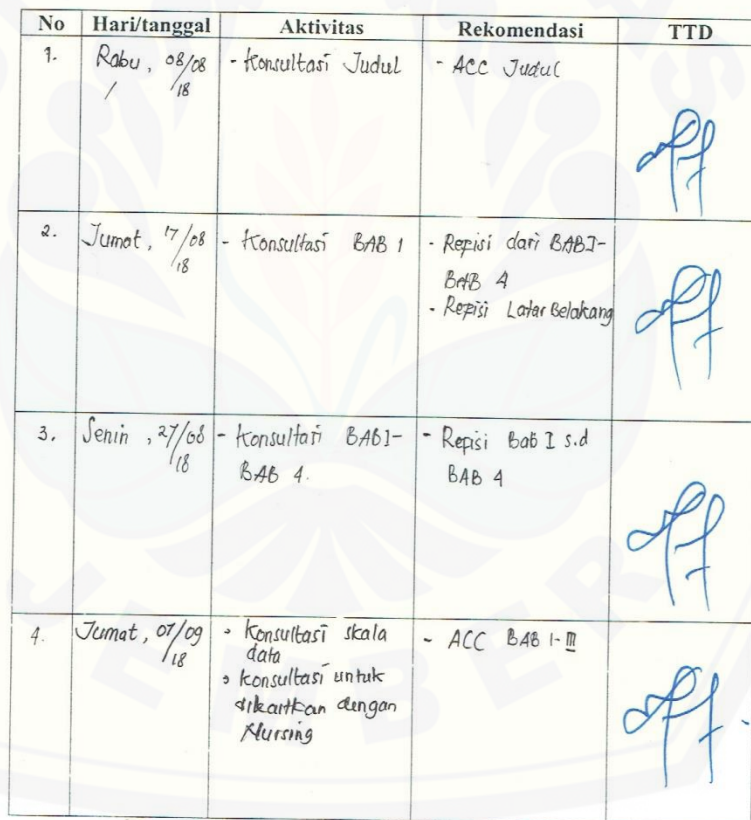 No Hari/tanggal Aktivitas Rekomendasi TTD
1. Rabu, 08/08/18 - Konsultasi Judul - ACC Judul
2. Jumat, 17/08/18 - Konsultasi BAB 1 - Repisi dari BAB I-
BAB 4
- Repisi Latar Belakang
3. Senin, 27/08/18 - Konsultasi BAB I- - Repisi Bab I s.d
BAB 4. BAB 4
4. Jumat, 07/09/18 • Konsultasi skala - ACC BAB I-III
data
• Konsultasi untuk
dikaitkan dengan
Nursing
JEMBER